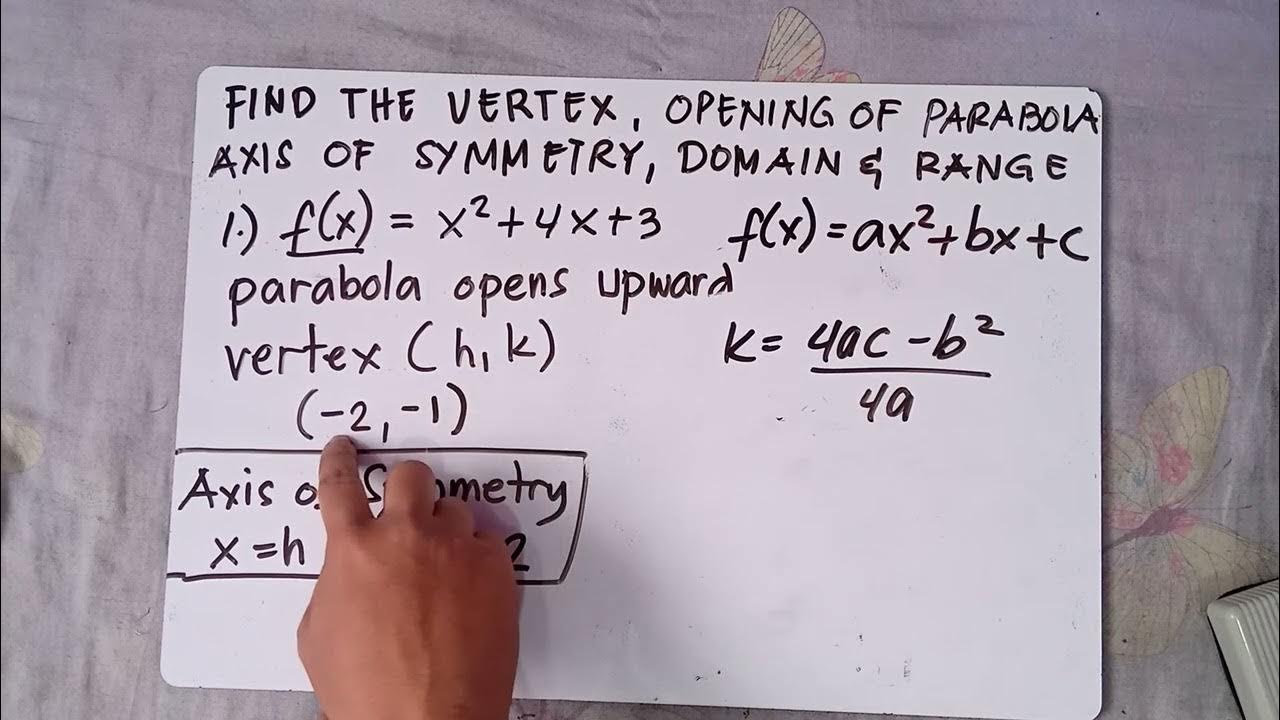 FIND THE VERTEX, OPENING OF PARABOLA
AXIS OF SYMMETRY, DOMAIN & RANGE
1.) f(x) = x² + 4x + 3
f(x) = ax² + bx + c
parabola opens upward
vertex (h, k)
(-2, -1)
K = 4ac - b² / 4a
Axis
x = h 2